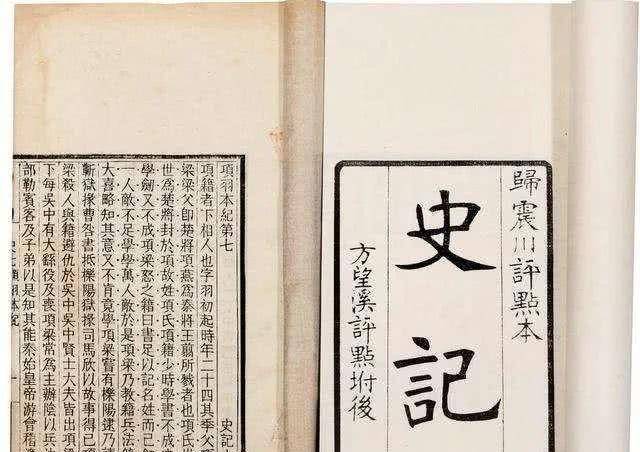 歸震川評點本
史記
方望溪評點坿後
項羽本紀第七
史記
項籍者下相人也字羽初起時年二十四其季父項
梁梁父卽楚將項燕爲秦將王翦所戮者也項氏世
世爲楚將封於項故姓項氏項籍少時學書不成
學劍又不成項梁怒之籍曰書足以記名姓而已
一人敵不足學學萬人敵於是項梁乃教籍兵法
大喜略知其意又不肯竟學項梁嘗有櫟陽逮乃
蘄獄掾曹咎書抵櫟陽獄掾司馬欣以故事得已
梁殺人與籍避仇於吳中吳中賢士大夫皆出項
下每吳中有大繇役及喪項梁常爲主辦陰以兵
部勒賓客及子弟以是知其能秦始皇帝游會稽